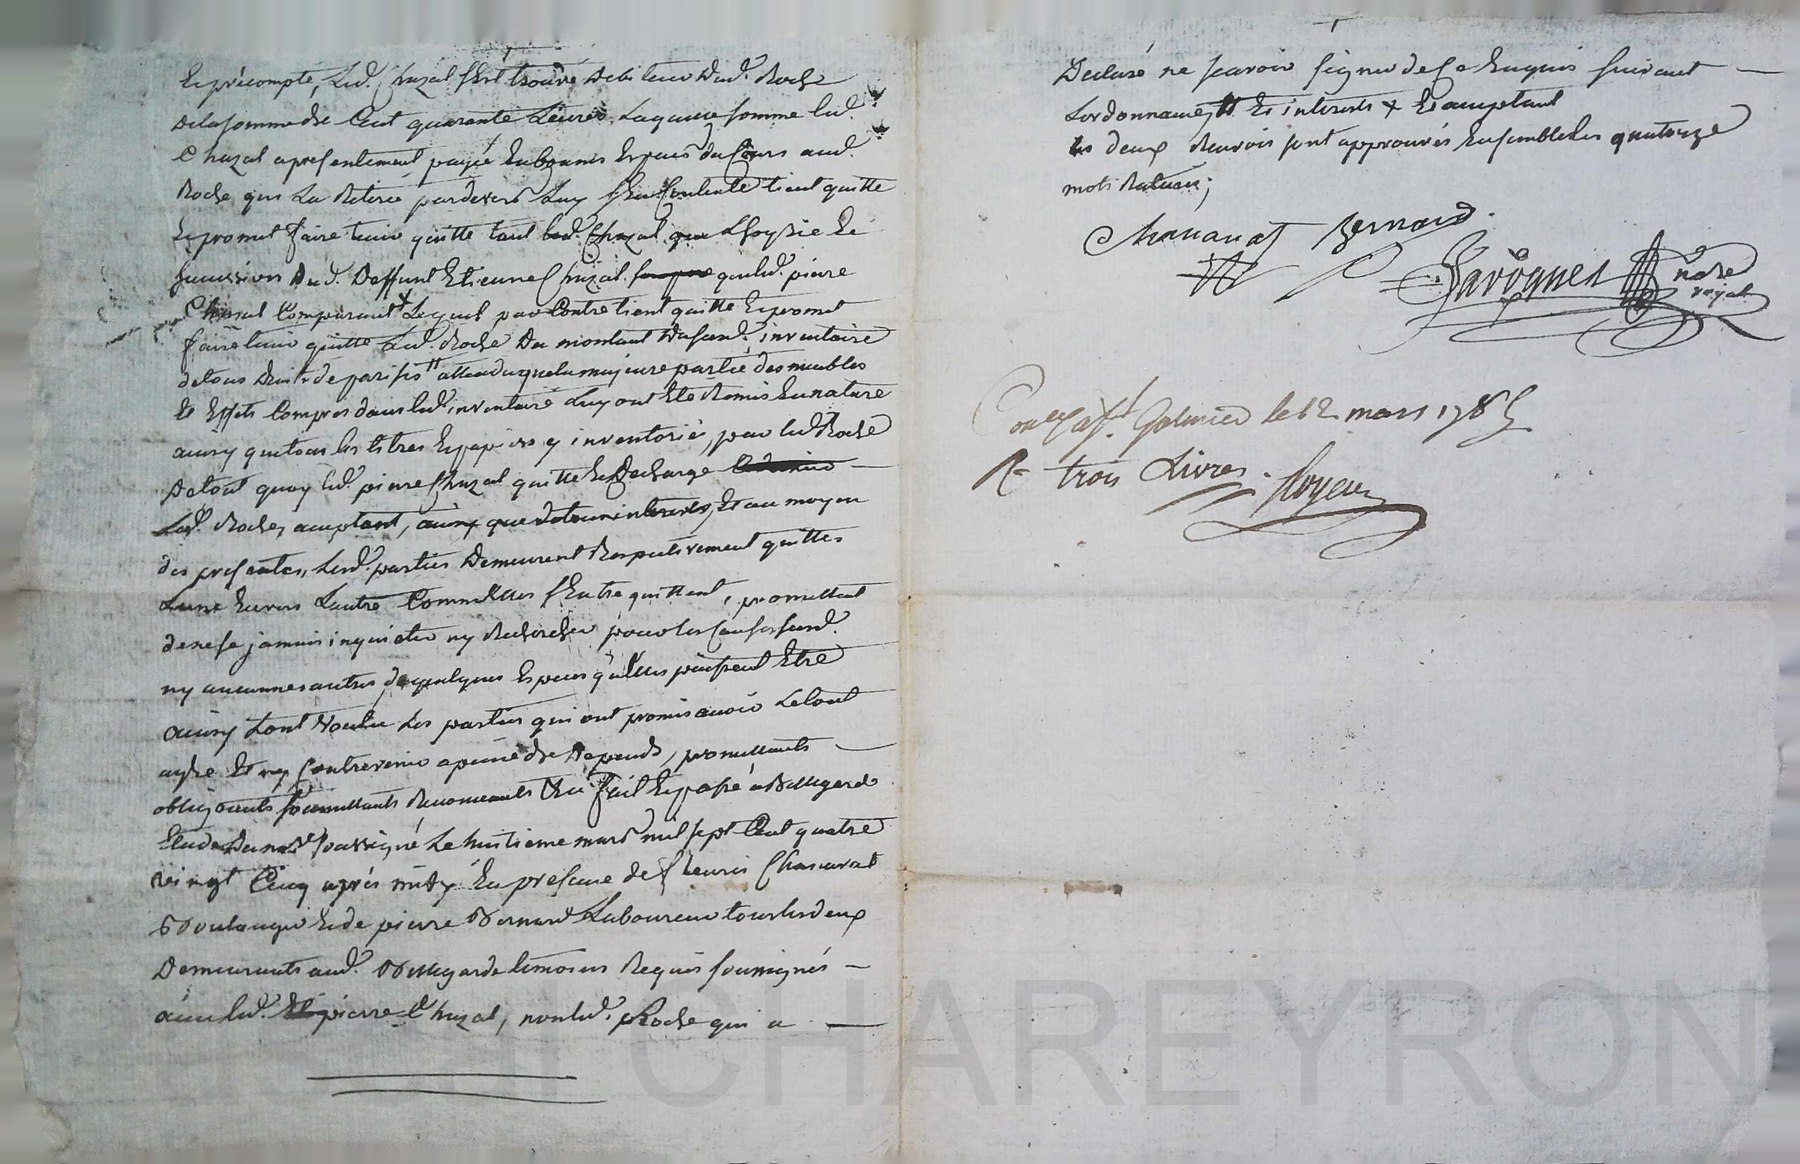 Et précompté, led. Chazal s'est trouvé debiteur dud. Roche
de la somme de Cent quarante Livres, Laquelle somme led.
Chazal a presentement payée En bonnes Especes du Cours aud.
Roche, qui La Retirée pardevers Luy s'En Contente tient quitte
Et promet faire tenir quitte tant led. Chazal que L'hoyrie Et
succession dud. deffunt Etienne Chazal que led. pierre
Chazal Comparant + Lequel par Contre tient quitte Et promet
faire tenir quitte Led. Roche du montant dusand. inventaire
de tous droits de parisis # attendu que la majeure partie des meubles
Et Effets Compris dans led. inventaire Luy ont Eté Remis En nature
ainsy que tous les titres Et papiers y inventoriés, par led. Roche
de tout quoy led. pierre Chazal quitte Et décharge
Led. Roche, acceptant, ainsy que de tous interests, Et au moyen
des presentes, Lesd. parties demeurent Respectivement quittes
L'une Envers L'autre Comme Elles s'Entre quittent, promettant
de ne se jamais inquieter ny Rechercher pour les Causes susd.
ny aucunnes autres de quelques Especes qu'Elles puissent Etre
ainsy L'ont Voulu Les parties qui ont promis avoir Le tout
agréé Et ny Contrevenir a peine de depends, promettants
obligeants soumettants Renonceants &a fait Et passé a Bellegarde
Etude du no.re soussigné, Le huitieme mars mil sept Cent quatre
vingt Cinq après midy En presence de fleuris Chanavat
Boulanger Et de pierre Bernard Laboureur tous les deux
demeurants aud. Bellegarde temoins Requis soussignés
avec led. pierre Chazal, non led. Roche qui a
Declaré ne scavoir signer de ce Enquis suivant
L'ordonnance # Et interests + Et acceptant
Les deux Renvois sont approuvés Ensemble Les quatorze
mots Raturés;
Chanavat Bernard.
Javôgues no.re
royal
Con.lé a St. Galmier le 12 mars 1785
R. trois Livres.
CHAREYRON